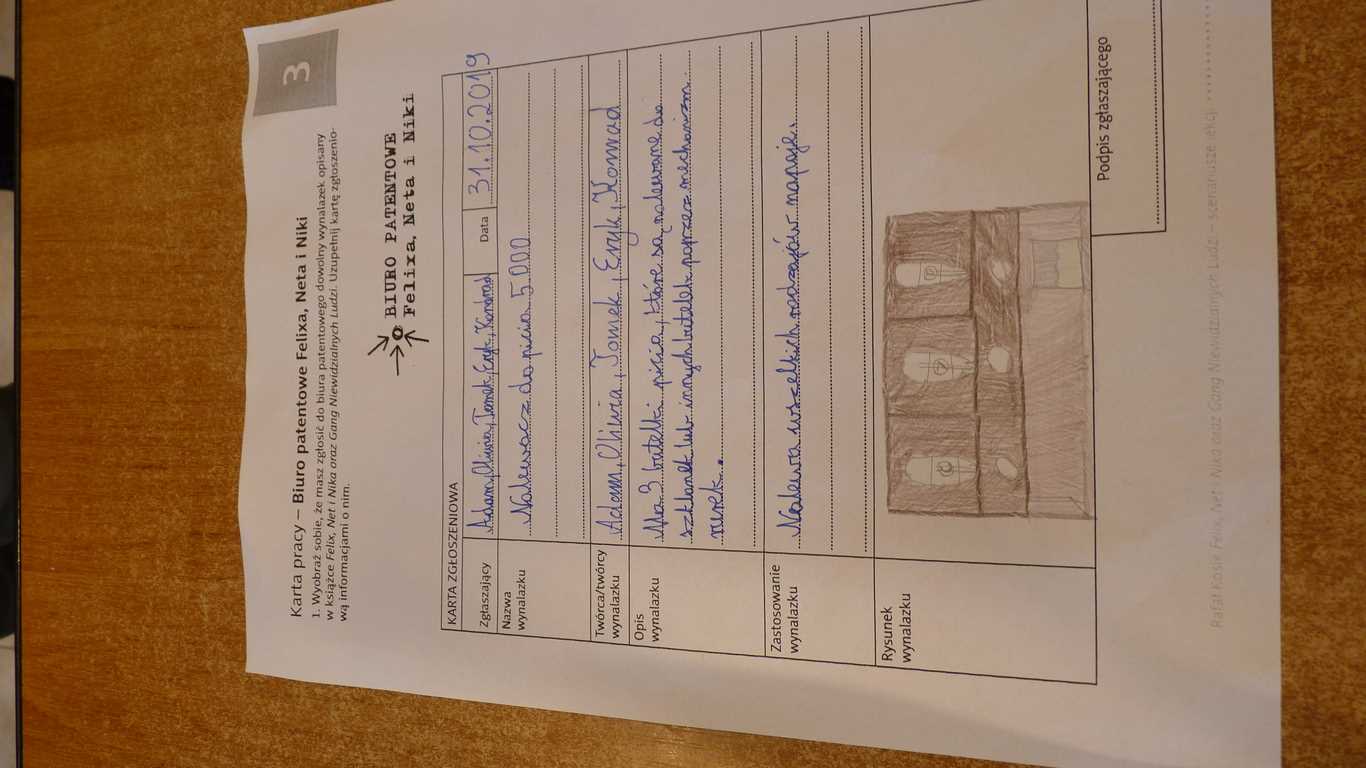 3
Karta pracy – Biuro patentowe Felixa, Neta i Niki
1. Wyobraź sobie, że masz zgłosić do biura patentowego dowolny wynalazek opisany
w książce Felix, Net i Nika oraz Gang Niewidzialnych Ludzi. Uzupełnij kartę zgłoszenio-
wą informacjami o nim.
BIURO PATENTOWE
Felixa, Neta i Niki
KARTA ZGŁOSZENIOWA
Zgłaszający Adam, Oliwia, Tomek, Eryk, Konrad Data 31.10.2019
Nazwa wynalazku Nalewacz do picia 5.000
Twórca/twórcy wynalazku Adam, Oliwia, Tomek, Eryk, Konrad
Opis wynalazku Ma 3 butelki picia, które są nalewane do
szklanek lub innych butelek poprzez mechanizm
rurek.
Zastosowanie wynalazku Nalewa wszelkich rodzajów napoje.
Rysunek wynalazku
Podpis zgłaszającego
Rafał Kosik Felix, Net i Nika oraz Gang Niewidzialnych Ludzi – scenariusze lekcji